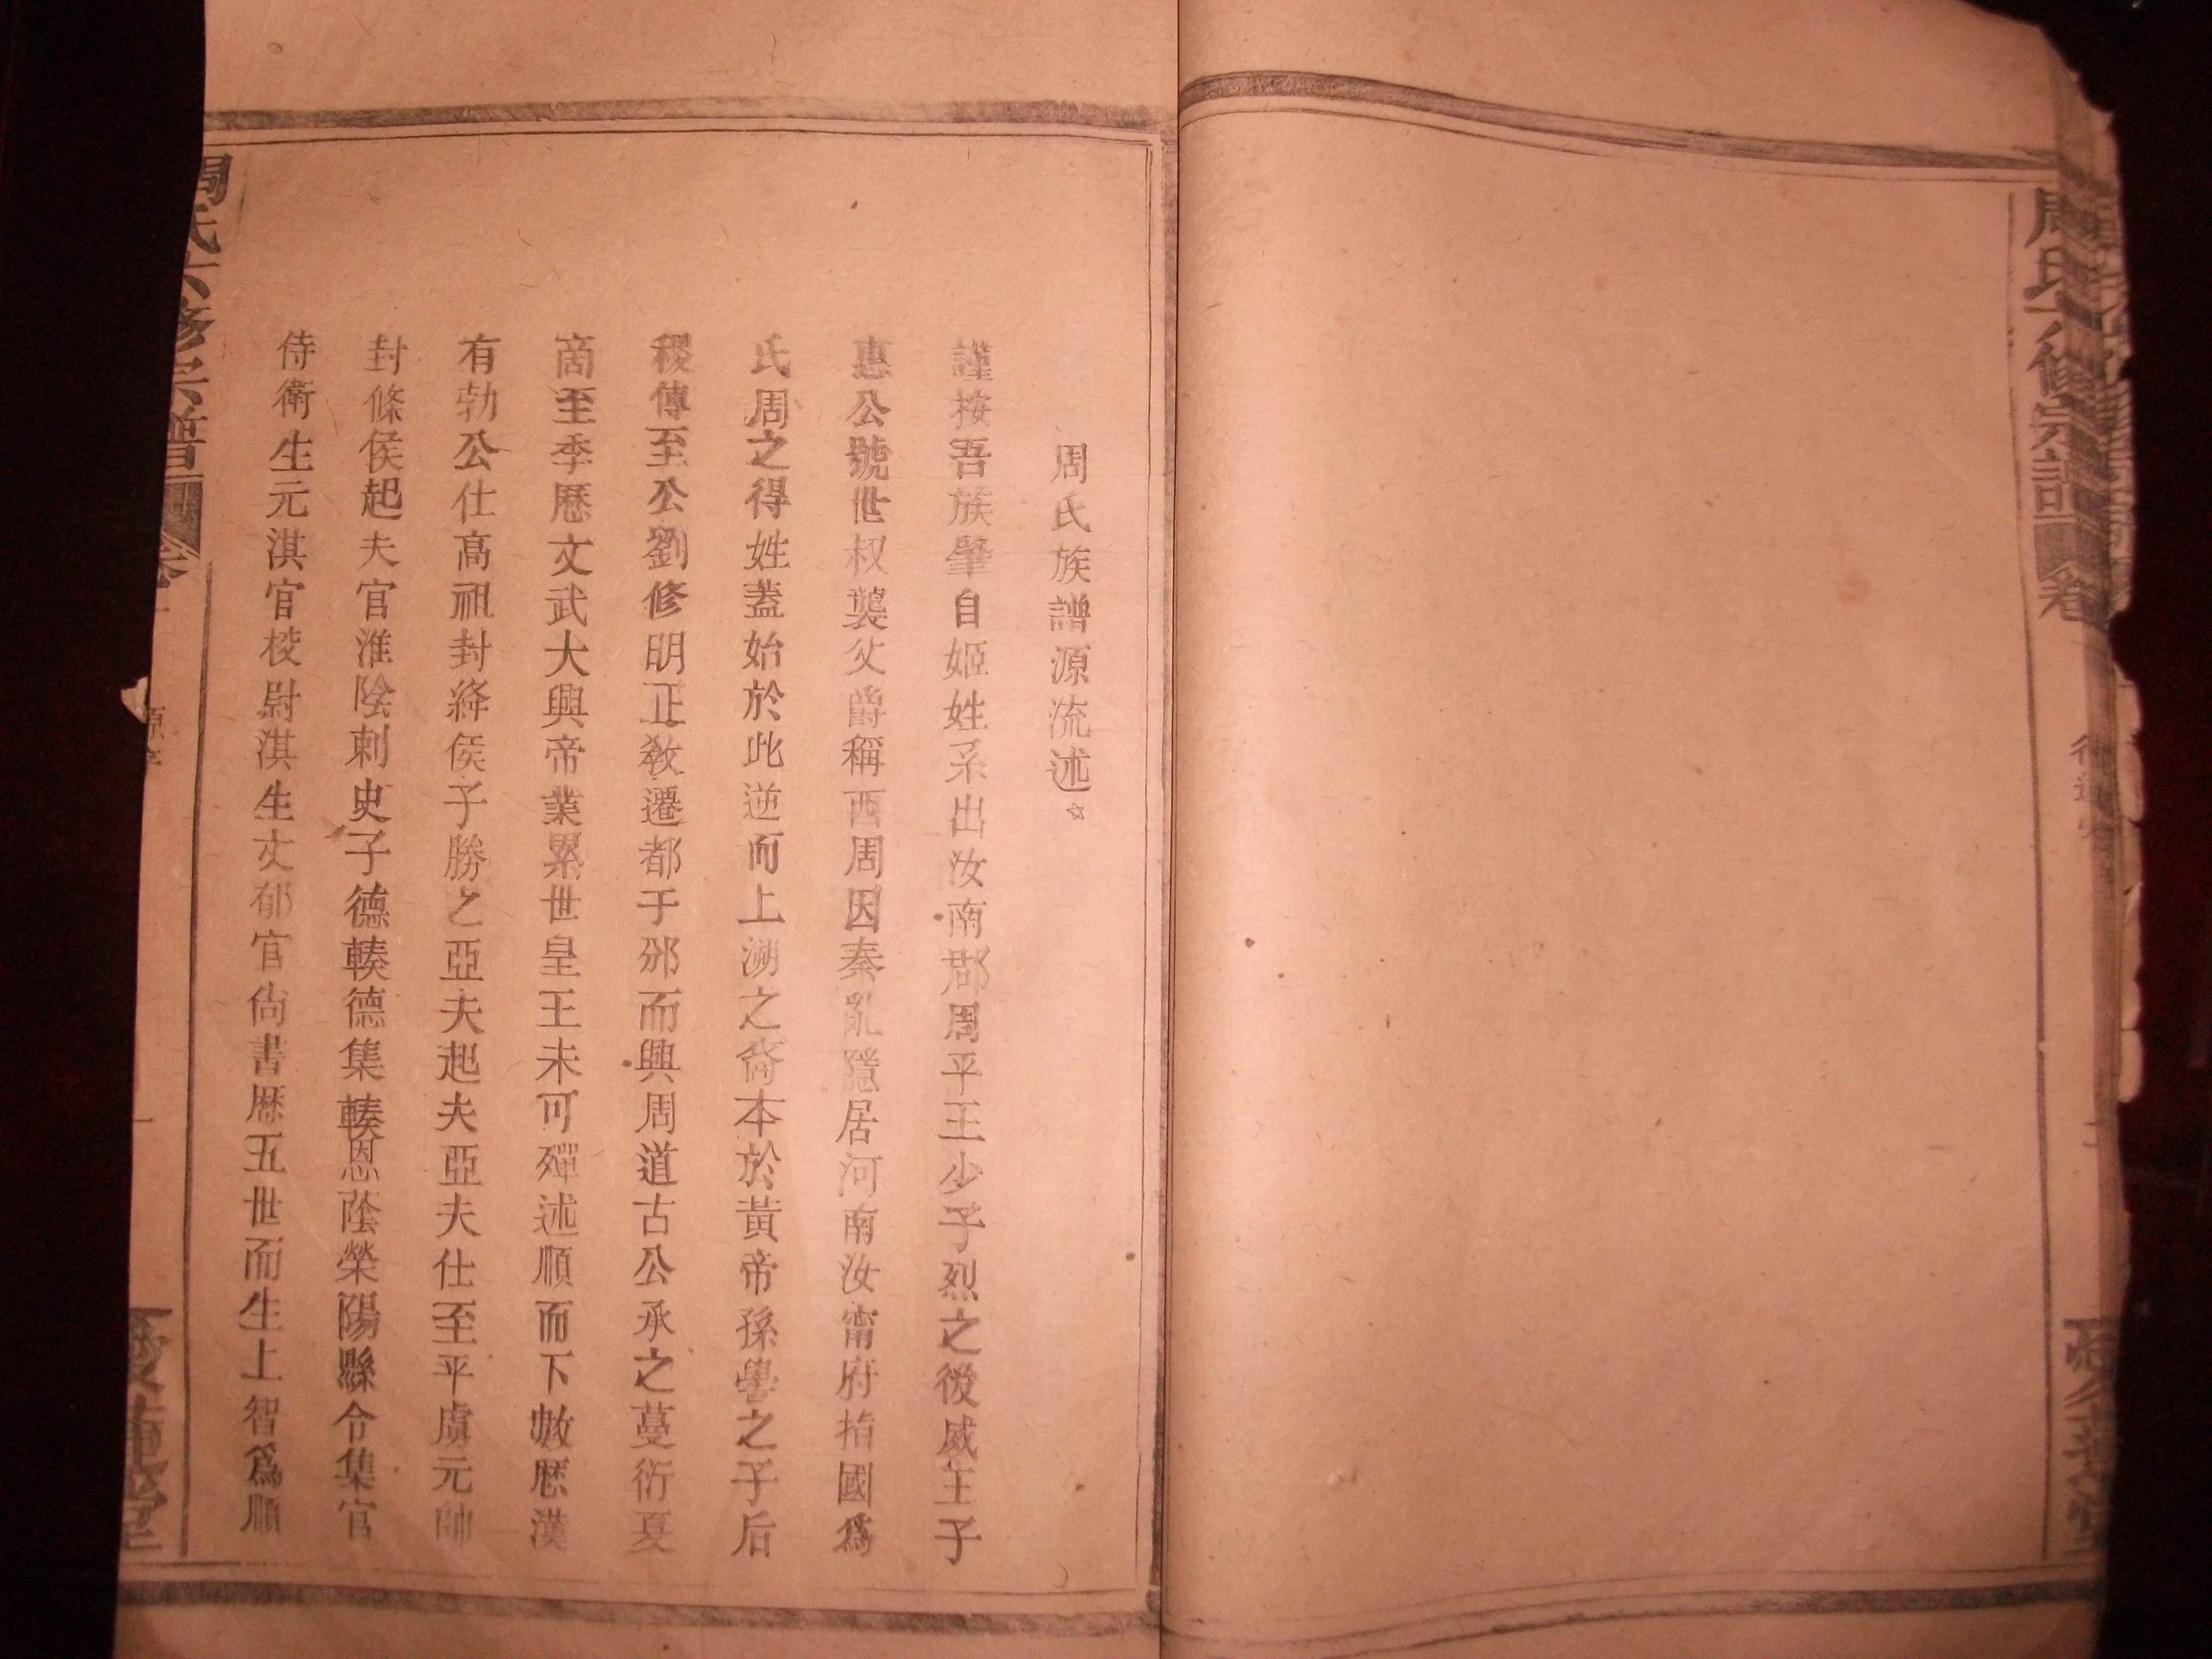 周氏六修宗譜
卷
二
愛蓮堂
周氏族譜源流述
謹按吾族肇自姬姓系出汝南郡周平王少子烈之後威王子
惠公號世叔襲父爵稱西周因秦亂隱居河南汝甯府指國爲
氏周之得姓蓋始於此逆而上溯之裔本於黃帝孫嚳之子后
稷傳至公劉修明正敎遷都于邠而興周道古公承之蔓衍夏
商至季歷文武大興帝業累世皇王未可殫述順而下數歷漢
有勃公仕高祖封絳侯子勝之亞夫起夫亞夫仕至平虜元帥
封條侯起夫官淮陰刺史子德輳德集輳恩蔭榮陽縣令集官
侍衛生元淇官校尉淇生文郁官尙書歷五世而生上智爲順
周氏六修宗譜
卷一
源序
一
愛蓮堂